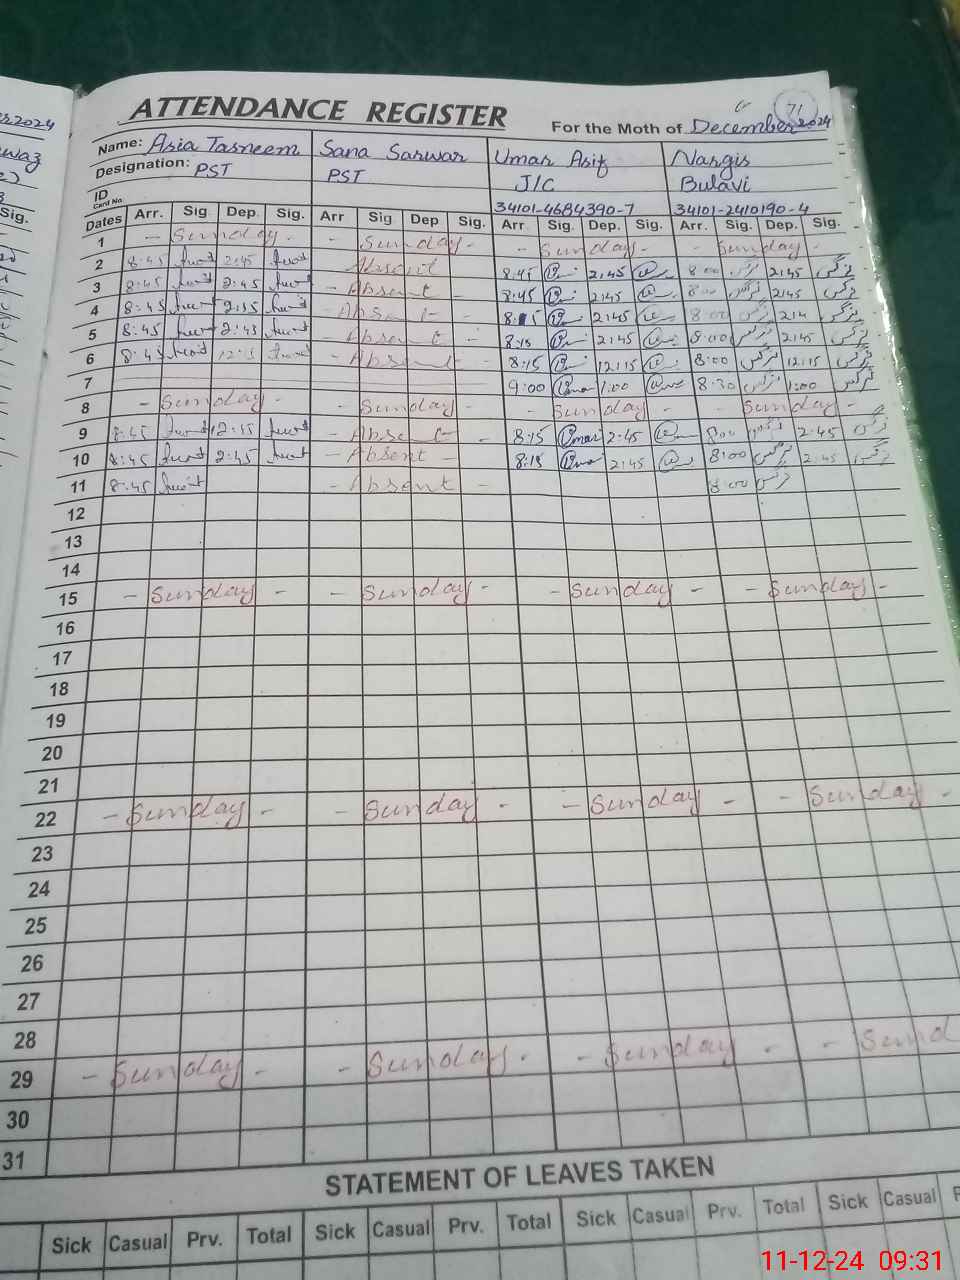 ATTENDANCE REGISTER
71
For the Moth of December 2024
Name: Asia Tasneem Sana Sarwar Umar Asif Nargis
Designation: PST PST J/C Bulavi
ID Card No. 34101-4684390-7 34101-2410190-4
Dates Arr. Sig Dep. Sig. Arr Sig Dep Sig. Arr. Sig. Dep. Sig. Arr. Sig. Dep. Sig.
1 - Sunday - - Sunday - - Sunday - - Sunday -
2 8:45 2:45 Absent 8:45 2:45 8:00 نرگس 2:45 نرگس
3 8:45 2:45 - Absent - 8:45 2:45 8:00 نرگس 2:45 نرگس
4 8:45 2:45 - Absent - 2:45 8:00 نرگس نرگس
5 8:45 2:45 - Absent - 8:15 2:45 8:00 نرگس 2:45 نرگس
6 8:45 - Absent - 8:15 12:15 8:00 نرگس 12:15 نرگس
7 9:00 Umar 1:00 8:30 نرگس 1:00 نرگس
8 - Sunday - - Sunday - - Sunday - - Sunday -
9 8:45 - Absent - 8:15 Umar 2:45 8:00 نرگس 2:45 نرگس
10 8:45 2:45 - Absent - 8:15 Umar 2:45 8:00 نرگس 2:45 نرگس
11 8:45 - Absent - 8:00 نرگس
12
13
14
15 - Sunday - - Sunday - - Sunday - - Sunday -
16
17
18
19
20
21
22 - Sunday - - Sunday - - Sunday - - Sunday -
23
24
25
26
27
28
29 - Sunday - - Sunday - - Sunday - - Sund
30
31
STATEMENT OF LEAVES TAKEN
Sick Casual Prv. Total Sick Casual Prv. Total Sick Casual Prv. Total Sick Casual P
11-12-24 09:31